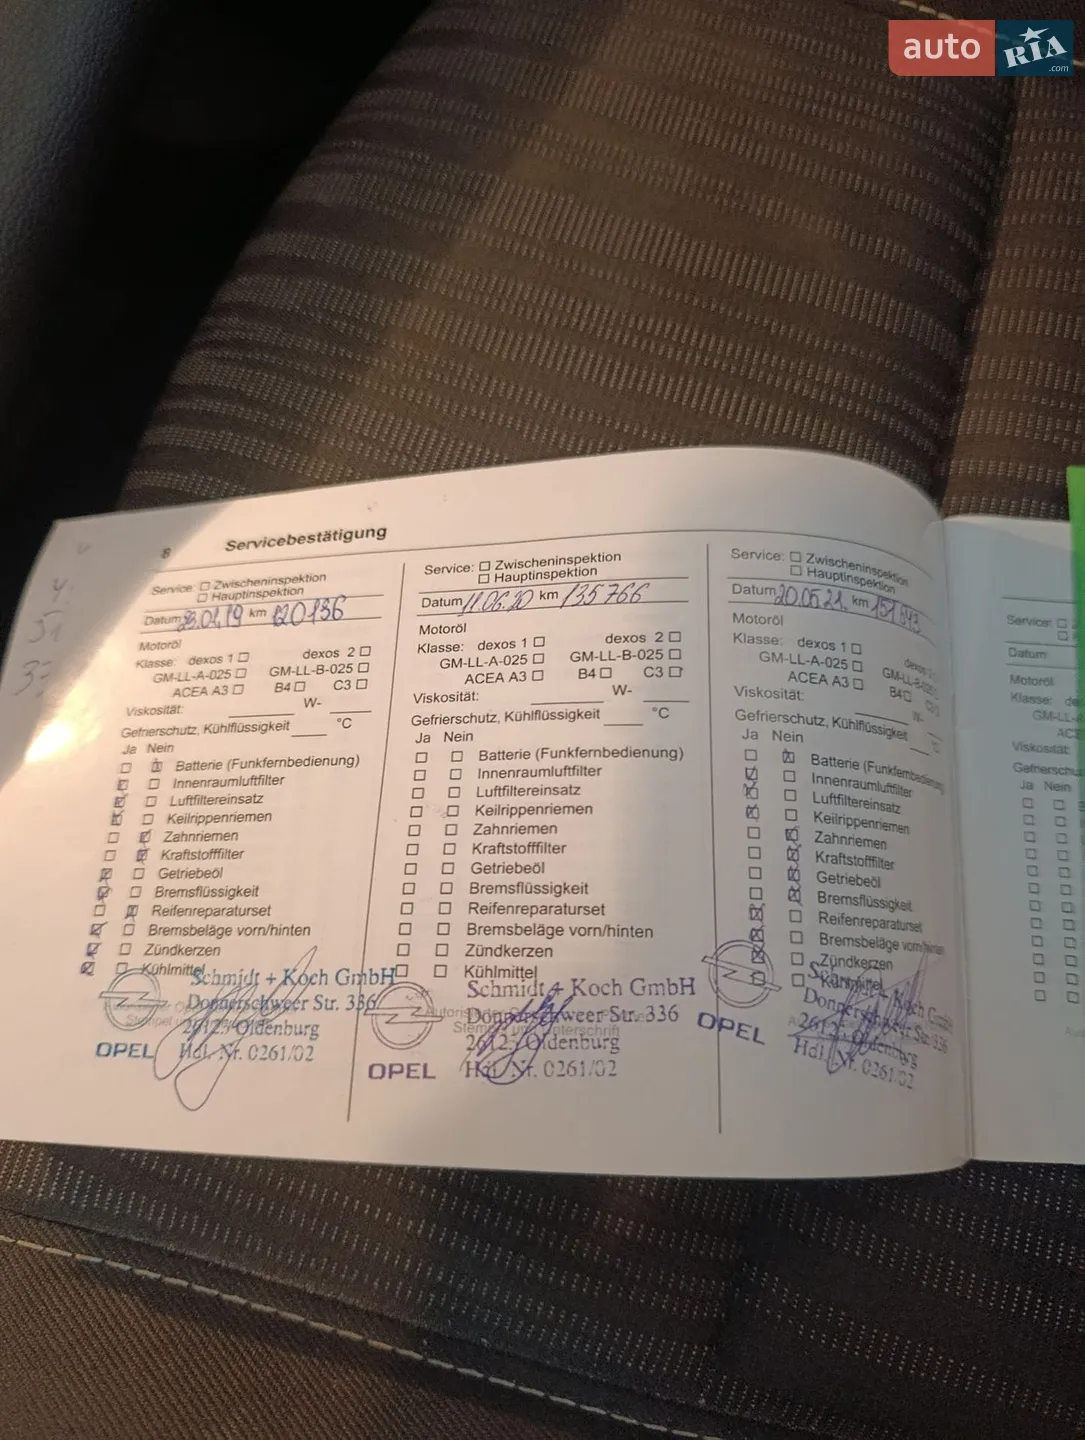 auto RIA .com
8 Servicebestätigung
Service: Zwischeninspektion
Hauptinspektion
Datum km 120136
Motoröl
Klasse: dexos 1 dexos 2
GM-LL-A-025 GM-LL-B-025
ACEA A3 B4 C3
Viskosität: W-
Gefrierschutz, Kühlflüssigkeit °C
Ja Nein
Batterie (Funkfernbedienung)
Innenraumluftfilter
Luftfiltereinsatz
Keilrippenriemen
Zahnriemen
Kraftstofffilter
Getriebeöl
Bremsflüssigkeit
Reifenreparaturset
Bremsbeläge vorn/hinten
Zündkerzen
Kühlmittel
Schmidt + Koch GmbH
Donnerschweer Str. 336
26123 Oldenburg
OPEL Hdl. Nr. 0261/02
Service: Zwischeninspektion
Hauptinspektion
Datum 11.06.20 km 135766
Motoröl
Klasse: dexos 1 dexos 2
GM-LL-A-025 GM-LL-B-025
ACEA A3 B4 C3
Viskosität: W-
Gefrierschutz, Kühlflüssigkeit °C
Ja Nein
Batterie (Funkfernbedienung)
Innenraumluftfilter
Luftfiltereinsatz
Keilrippenriemen
Zahnriemen
Kraftstofffilter
Getriebeöl
Bremsflüssigkeit
Reifenreparaturset
Bremsbeläge vorn/hinten
Zündkerzen
Kühlmittel
Schmidt + Koch GmbH
Donnerschweer Str. 336
26123 Oldenburg
OPEL Hdl. Nr. 0261/02
Service: Zwischeninspektion
Hauptinspektion
Datum 20.05.21. km
Motoröl
Klasse: dexos 1 dexos
GM-LL-A-025 GM-LL-B-025
ACEA A3 B4 C3
Viskosität: W-
Gefrierschutz, Kühlflüssigkeit °C
Ja Nein
Batterie (Funkfernbedienung)
Innenraumluftfilter
Luftfiltereinsatz
Keilrippenriemen
Zahnriemen
Kraftstofffilter
Getriebeöl
Bremsflüssigkeit
Reifenreparaturset
Bremsbeläge vorn/hinten
Zündkerzen
Kühlmittel
Koch
Donnerschweer Str. 336
26123 Oldenburg
OPEL Hdl. Nr. 0261/02
Service:
Datum
Motoröl
Klasse:
GM-LL
ACE
Viskosität:
Gefrierschu
Ja Nein